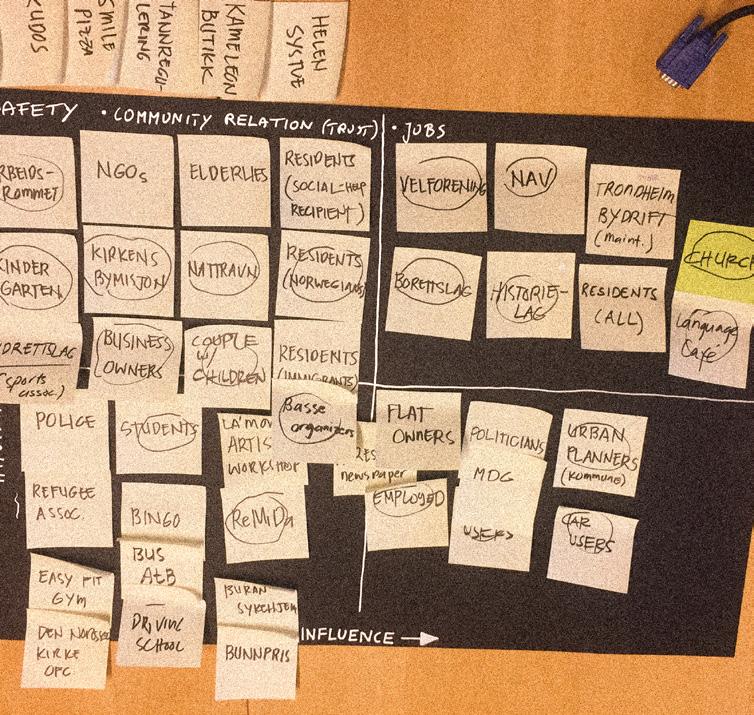 KUDOS
SMILE
PIZZA
TANNREGU-
LERING
KAMELEON
BUTIKK
HELEN
SYSTUE
AFETY
• COMMUNITY RELATION (TRUST)
• JOBS
RBEIDS-
ROMMET
NGOs
ELDERLIES
RESIDENTS
(SOCIAL-HELP
RECIPIENT)
VELFORENING
NAV
TRONDHEIM
BYDRIFT
(maint.)
KINDER
GARTEN
KIRKENS
BYMISJON
NATTRAVN
RESIDENTS
(NORWEGIANS)
BORETTSLAG
HISTORIE-
LAG
RESIDENTS
(ALL)
CHURCH
Language
Cafe
IDRETTSLAG
(sports
assoc.)
BUSINESS
OWNERS
COUPLE
W/
CHILDREN
RESIDENTS
(IMMIGRANTS)
POLICE
STUDENTS
LA'MO
ARTIS
WORKSHOP
Basse
organizers
newspaper
FLAT
OWNERS
POLITICIANS
URBAN
PLANNERS
(kommune)
REFUGEE
ASSOC.
BINGO
ReMiDa
EMPLOYED
MDG
USERS
CAR
USERS
EASY FIT
GYM
BUS
AtB
BURAN
SYKEHJEM
DEN NORSKE
KIRKE
OFC
DRIVING
SCHOOL
BUNNPRIS
INFLUENCE →